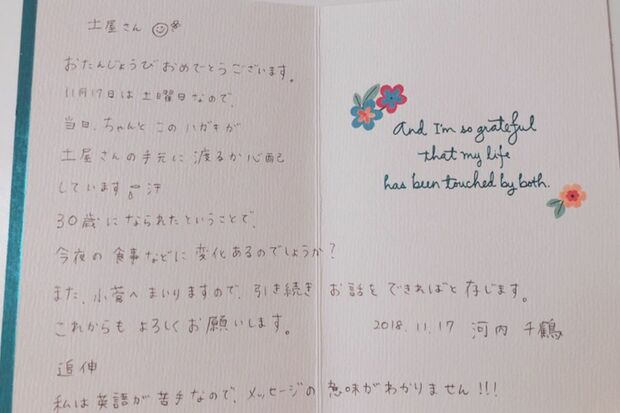 土屋さん
おたんじょうび おめでとうございます。
11月17日は 土曜日なので、
当日、ちゃんと このハガキが
土屋さんの手元に 渡るか心配
しています 汗
30歳に なられたということで、
今夜の 食事などに 変化あるのでしょうか?
また、小菅へ まいりますので、引き続き お話を できればと 存じます。
これからも よろしく お願いします。
2018.11.17 河内 千鶴
追伸
私は 英語が 苦手なので、メッセージの 意味が わかりません!!!
And I'm so grateful
that my life
has been touched by both.